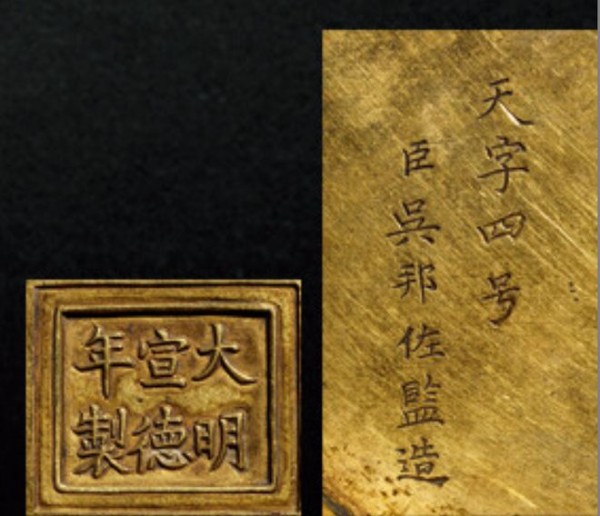 天字四号
臣吳邦佐監造
大明
宣德
年製